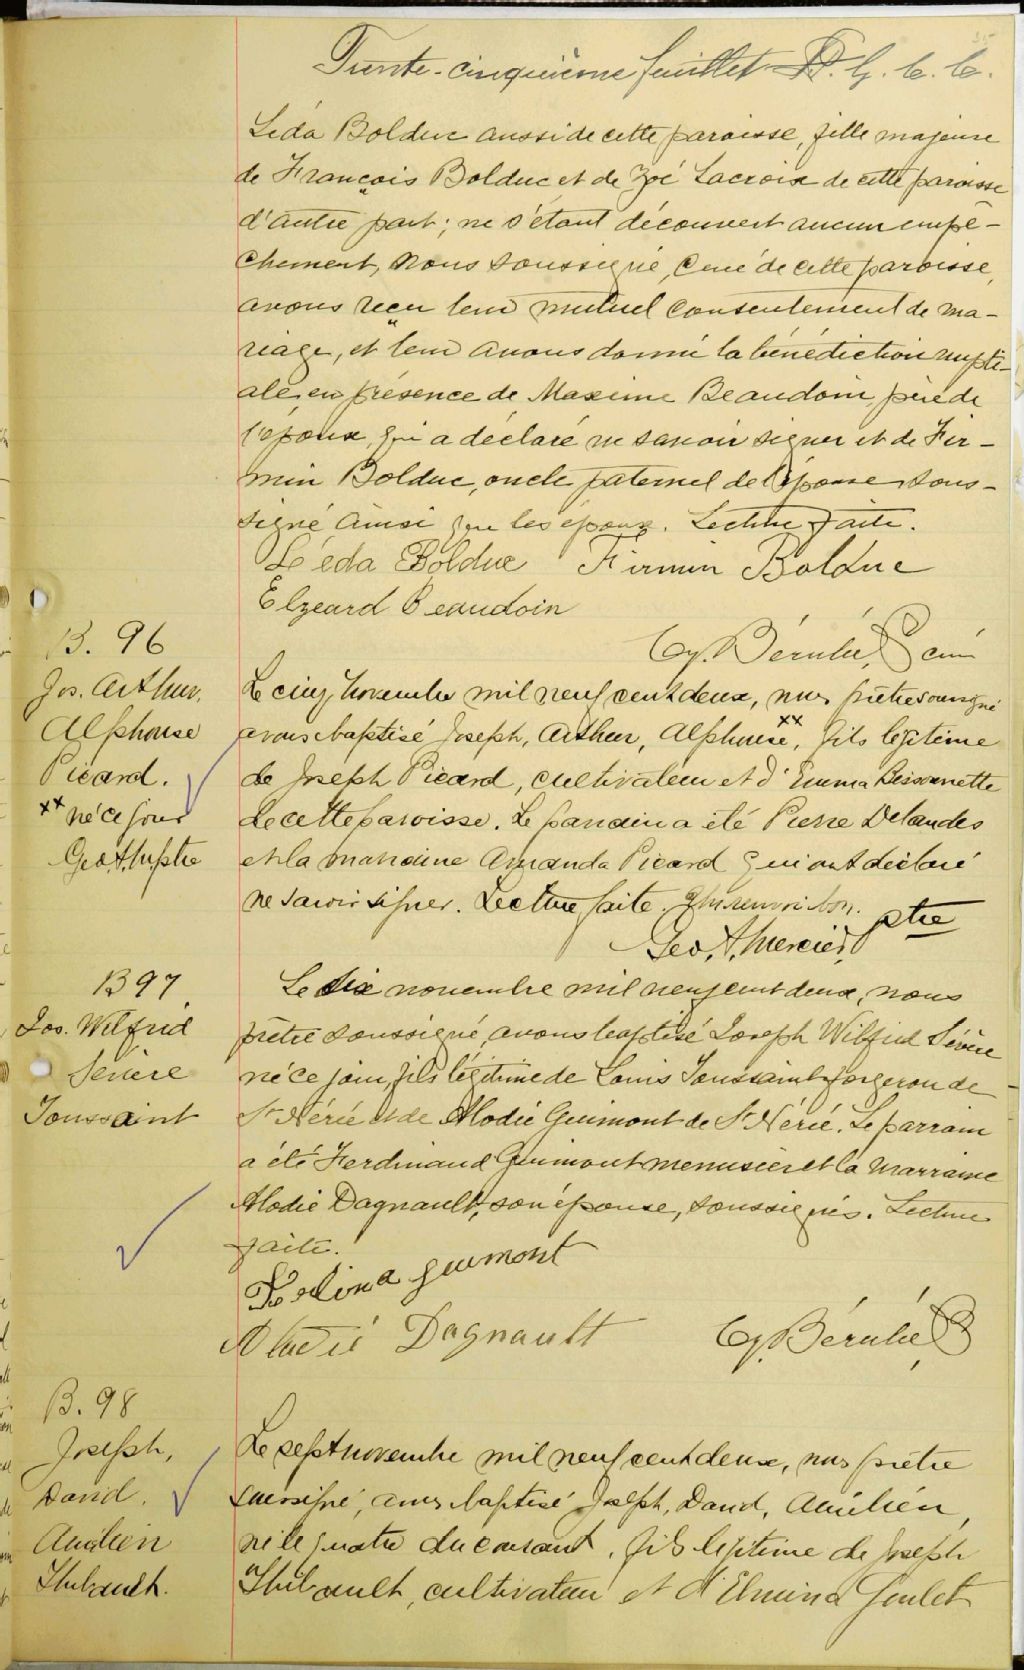 Trente-cinquième feuillet P. G. C. C.
Léda Bolduc aussi de cette paroisse, fille majeure
de François Bolduc et de Zoé Lacroix de cette paroisse
d'autre part; ne s'étant découvert aucun empê-
chement, nous soussigné, curé de cette paroisse,
avons reçu leur mutuel consentement de ma-
riage, et leur avons donné la bénédiction nupti-
ale, en présence de Maxime Beaudoin, père de
l'époux, qui a déclaré ne savoir signer et de Fir-
min Bolduc, oncle paternel de l'épouse, sous-
signé ainsi que les époux. Lecture faite.
Léda Bolduc Firmin Bolduc
Elzeard Beaudoin
Cy. Bérubé, Ptre curé
B. 96
Jos. Arthur,
Alphonse
Picard.
xx né ce jour
Geo. A. M. ptre
Le cinq novembre mil neuf cent deux, nous prêtre soussigné
avons baptisé Joseph, Arthur, Alphonse xx, fils légitime
de Joseph Picard, cultivateur et d'Emma Bissonnette
de cette paroisse. Le parrain a été Pierre Delandes
et la marraine Amanda Picard qui ont déclaré
ne savoir signer. Lecture faite. Un renvoi bon.
Geo. A. Mercier, ptre
B 97
Jos. Wilfrid
Sévère
Toussaint
Le six novembre mil neuf cent deux, nous
prêtre soussigné, avons baptisé Joseph Wilfrid Sévère
né ce jour, fils légitime de Louis Toussaint forgeron de
St Nérée et de Alodie Guimont de St Nérée. Le parrain
a été Ferdinand Guimont menuisier et la marraine
Alodie Dagnault, son épouse, soussignés. Lecture
faite.
Ferdina Guimont
Alodié Dagnault Cy. Bérubé, Ptre
B. 98
Joseph,
David,
Aurélien
Thibault.
Le sept novembre mil neuf cent deux, nous prêtre
soussigné, avons baptisé Joseph, David, Aurélien,
né le quatre du courant, fils légitime de Joseph
Thibault, cultivateur et d'Elmina Goulet